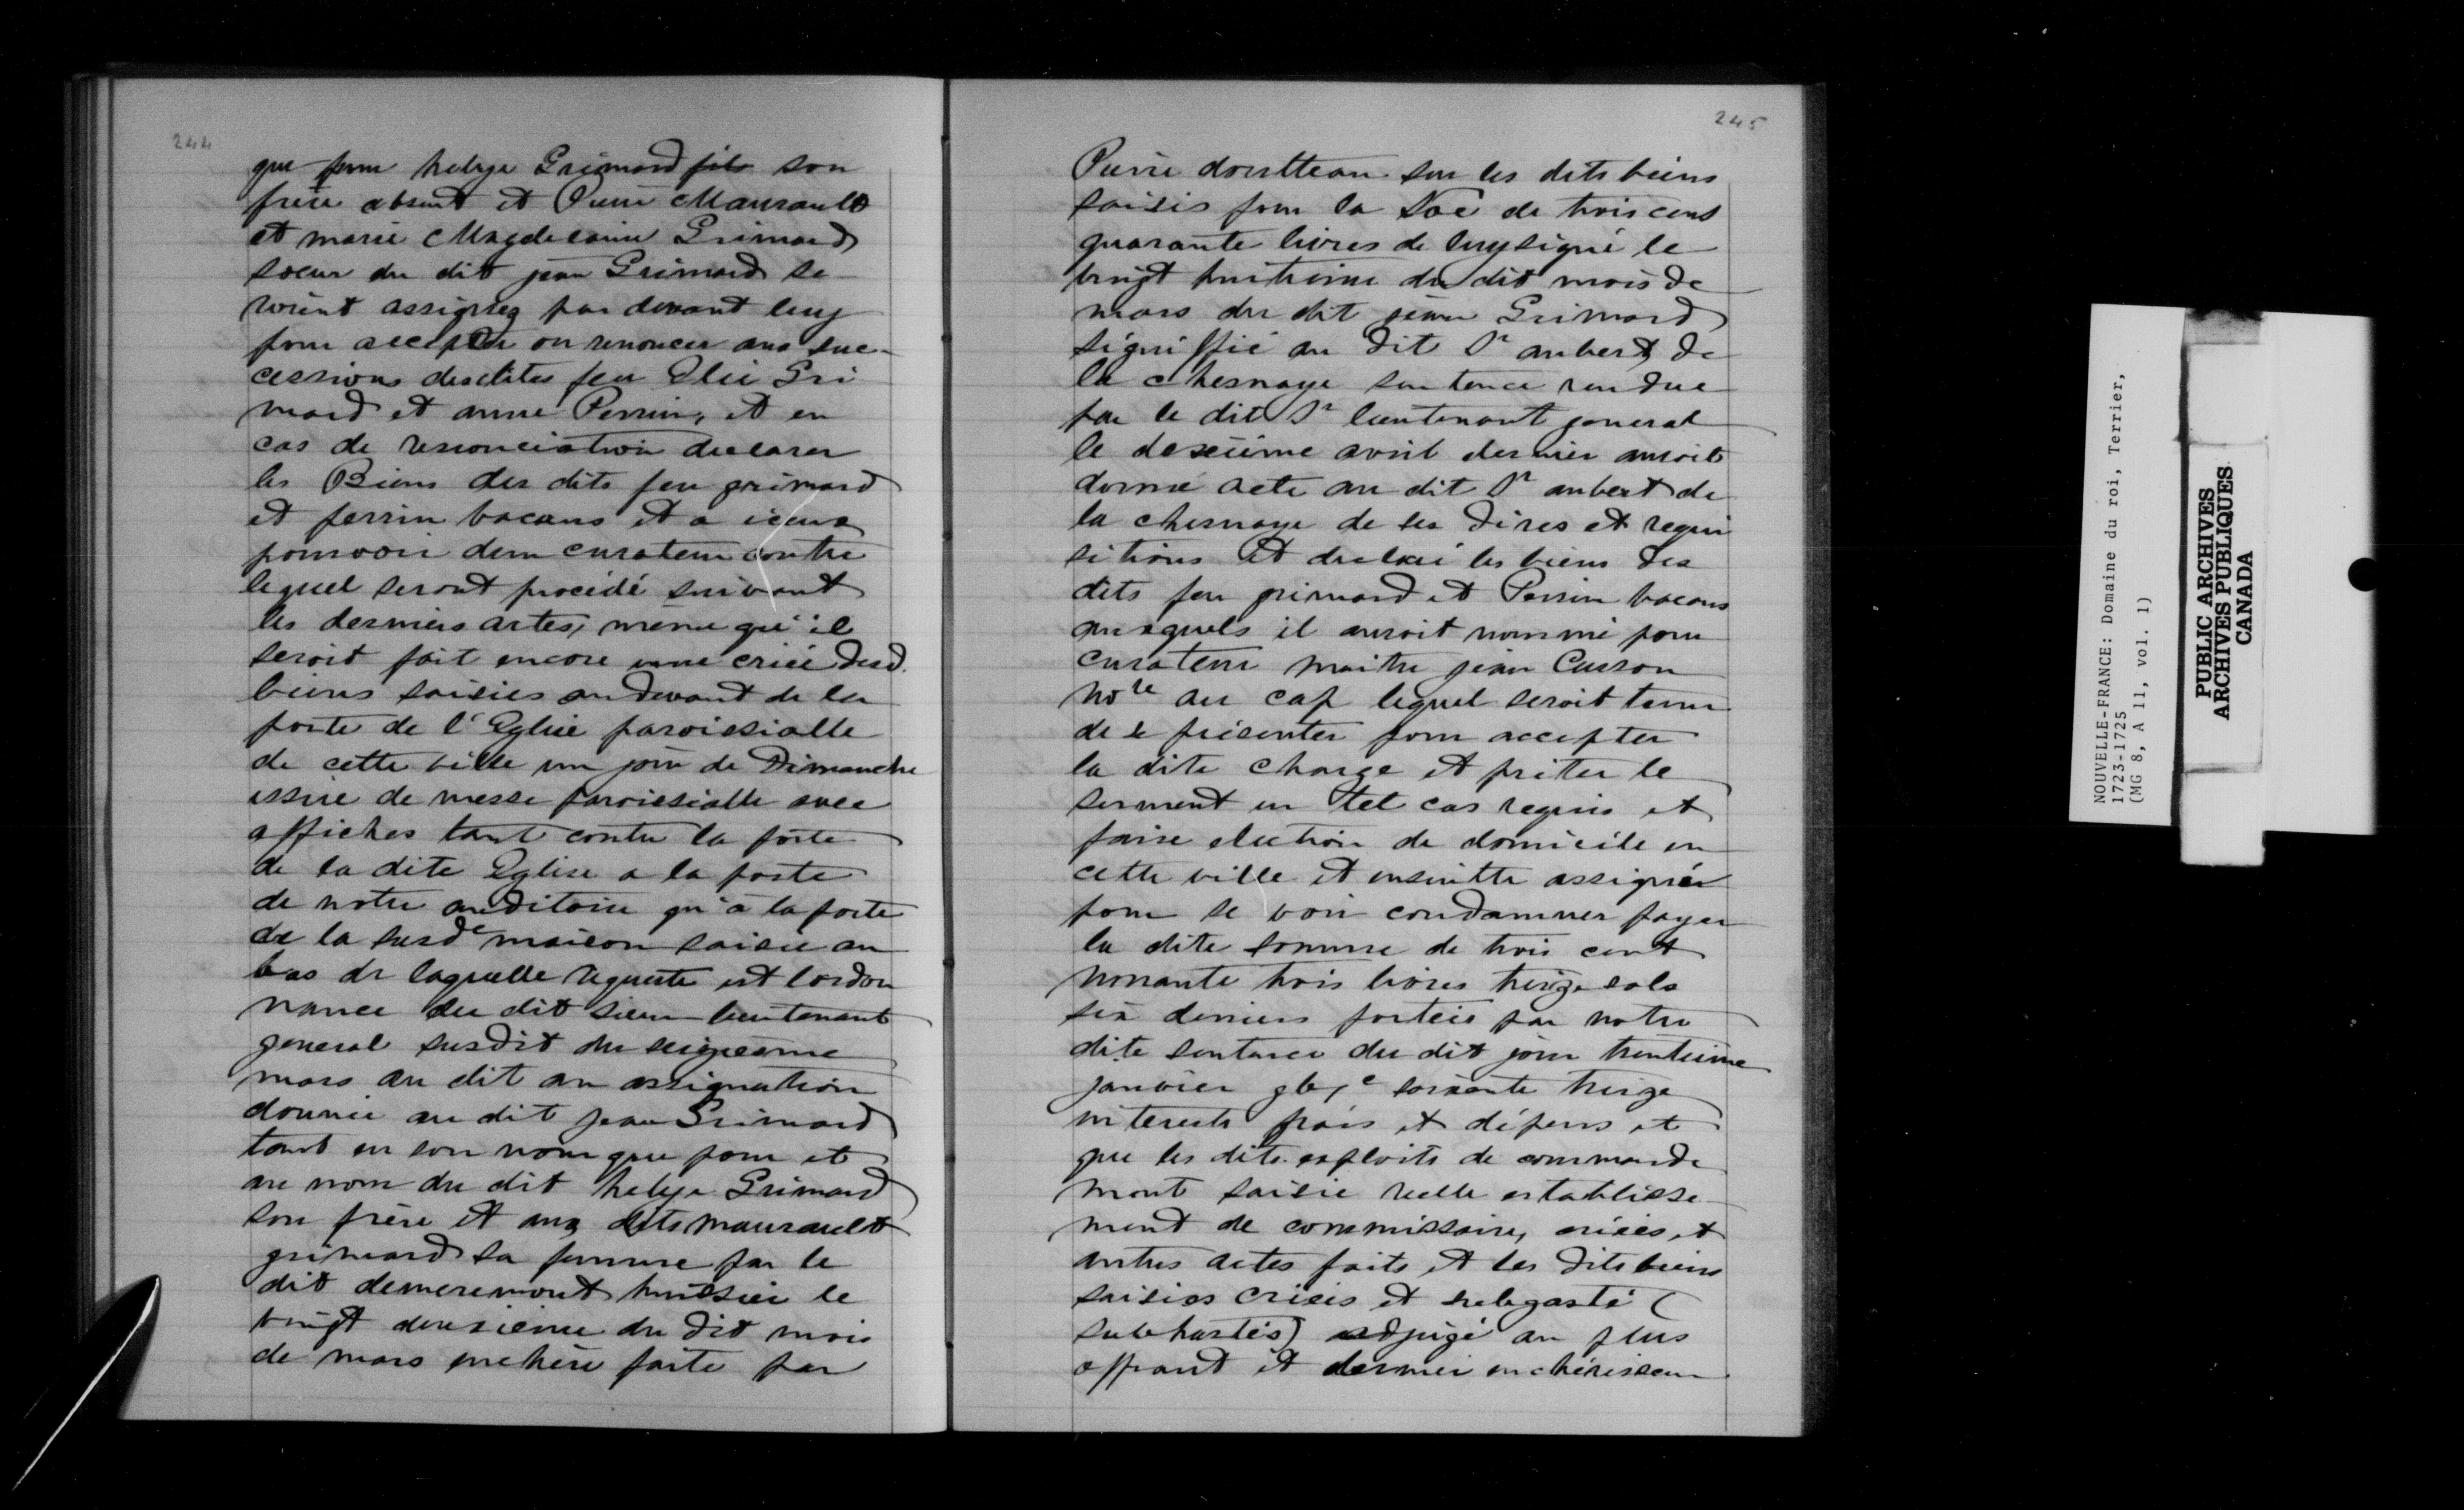 244
que pour helye Grimard fils son
frere absent et Pierre Maurault
et marie Magdelaine Grimard
soeur du dit jean Grimard se
roient assignez par devant luy
pour accepter ou renoncer aux suc-
cessions desdites feu Elie Gri
mard et anne Perrin, et en
cas de renonciation declarer
les Biens des dits feu grimard
et perrin vacans et a iceux
pourvoir dun curateur contre
lequel seront procédé suivant
les derniers actes, meme qu'il
seroit fait encore une criée desd.
biens saisies au devant de la
porte de l'Eglise paroissialle
de cette ville un jour de Dimanche
issue de messe paroissialle avec
affiches tant contre la porte
de la dite Eglise a la porte
de notre auditoire qu'à la porte
de la susde maison saisie au
bas de laquelle requeste est lordon
nance du dit sieur lieutenant
general susdit du seiziesme
mars au dit an assignation
donnée au dit jean Grimard
tant en son nom que pour et
au nom du dit helye Grimard
son frère et aux dits maurault
grimard sa femme par le
dit demeremont huissier le
vingt deuxieme du dit mois
de mars enchère faite par
245
Pierre doustteau sur les dits biens
saisis pour la Soe de trois cens
quarante livres de luy signé le
vingt huitieme du dit mois de
mars du dit jean Grimard
signiffié au dit Sr aubert de
la chesnaye sentence rendue
par le dit Sr lieutenant general
le dexième avril dernier auroit
donné acte au dit Sr aubert de
la chesnaye de ses dires et requi
sitions et declaré les biens des
dits feu grimard et Perrin vacans
auxquels il auroit nommé pour
curateur maitre jean Cusson
Nore au cap lequel seroit tenu
de se présenter pour accepter
la dite charge et prêter le
serment en tel cas requis et
faire election de domicile en
cette ville et ensuitte assigner
pour se voir condamner payer
la dite somme de trois cent
nonante trois livres treize sols
six deniers portée par notre
dite sentence du dit jour trentieme
janvier gbjc soixante treize
interests frais et dépens et
que les dits exploits de commande
ment saisie reelle establisse
ment de commissaire, criées et
autres actes faits et les dits biens
saisies criées et subgasté (
subhastés) adjugé au plus
offrant et dernier enchérisseur
NOUVELLE-FRANCE: Domaine du roi, Terrier,
1723-1725
(MG 8, A 11, vol. 1)
PUBLIC ARCHIVES
ARCHIVES PUBLIQUES
CANADA